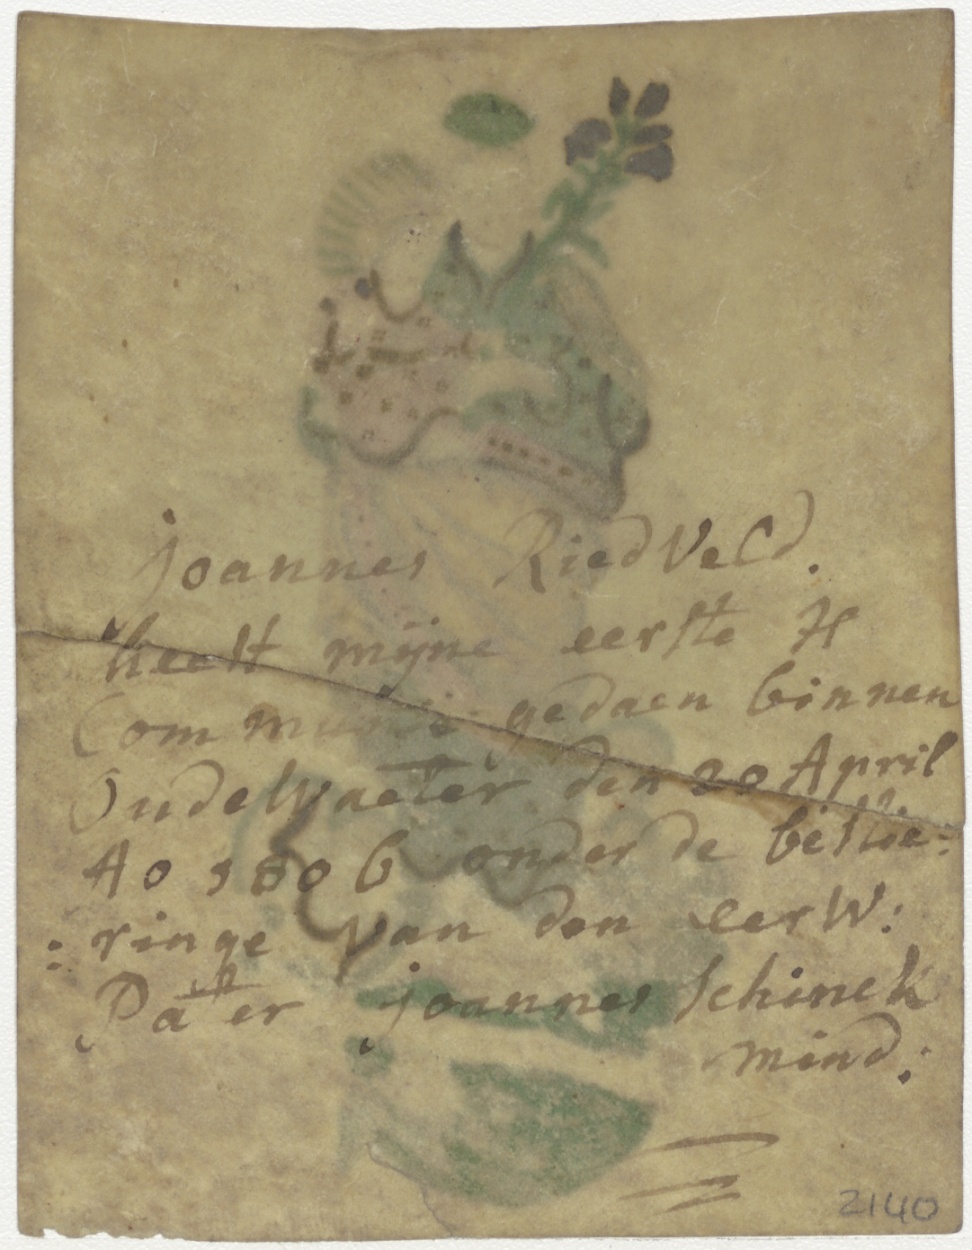 joannes RiedVeld.
heeft mijne eerste H
Communie gedaen binnen
OudeWaeter den 20 April
Ao 1806 onder de bestie:
:ringe Van den eerW:
Pater joannes Schinck
mind:
2140